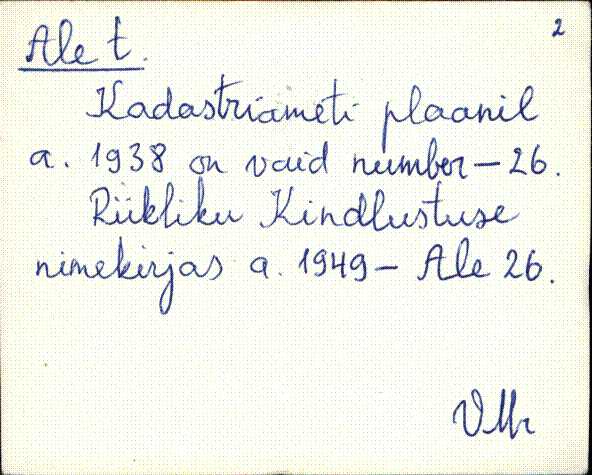 2
Ale t.
Kadastriameti plaanil
a. 1938 on vaid number - 26.
Riikliku Kindlustuse
nimekirjas a. 1949 - Ale 26.